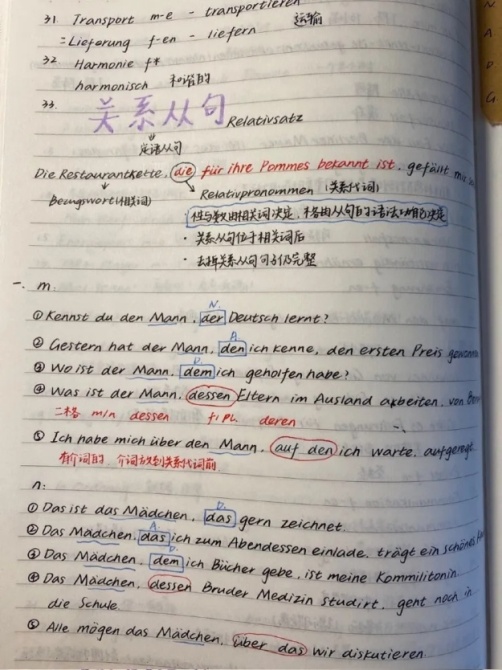 31. Transport m-e - transportieren 运输
= Lieferung f-en - liefern
32. Harmonie f*
harmonisch 和谐的
33. 关系从句 Relativsatz
定语从句
Die Restaurantkette, die für ihre Pommes bekannt ist, gefällt
Bezugswort(相关词) Relativpronommen (关系代词)
性与数由相关词决定, 格由从句后的语法功能决定
· 关系从句位于相关词后
· 去掉关系从句句子仍完整
一. m
N.
① Kennst du den Mann, der Deutsch lernt?
A.
② Gestern hat der Mann, den ich kenne, den ersten Preis gewonnen
D.
③ Wo ist der Mann, dem ich geholfen habe?
④ Was ist der Mann, dessen Eltern im Ausland arbeiten, von
二格 m/n dessen f/Pl. deren
⑤ Ich habe mich über den Mann, auf den ich warte, aufgeregt
有介词的 介词放到关系代词前
n:
① Das ist das Mädchen, das gern zeichnet.
A.
② Das Mädchen, das ich zum Abendessen einlade, trägt ein schönes
D.
③ Das Mädchen, dem ich Bücher gebe, ist meine Kommilitonin.
④ Das Mädchen, dessen Bruder Medizin studirt, geht noch in
die Schule.
⑤ Alle mögen das Mädchen, über das wir diskutieren
N A D G